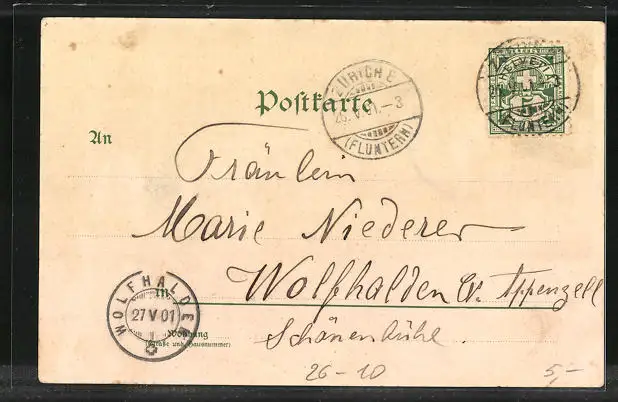 ZÜRICH 8
26.V.01.–3
(FLUNTERN)
HELVETIA
5
(FLUNTERN)
Postkarte
An
Fräulein
Marie Niederer
in Wolfhalden Ct. Appenzell
WOLFHALDEN
27 V 01
Wohnung
(Straße und Hausnummer)
Schönenbühl.
26-10
5,-